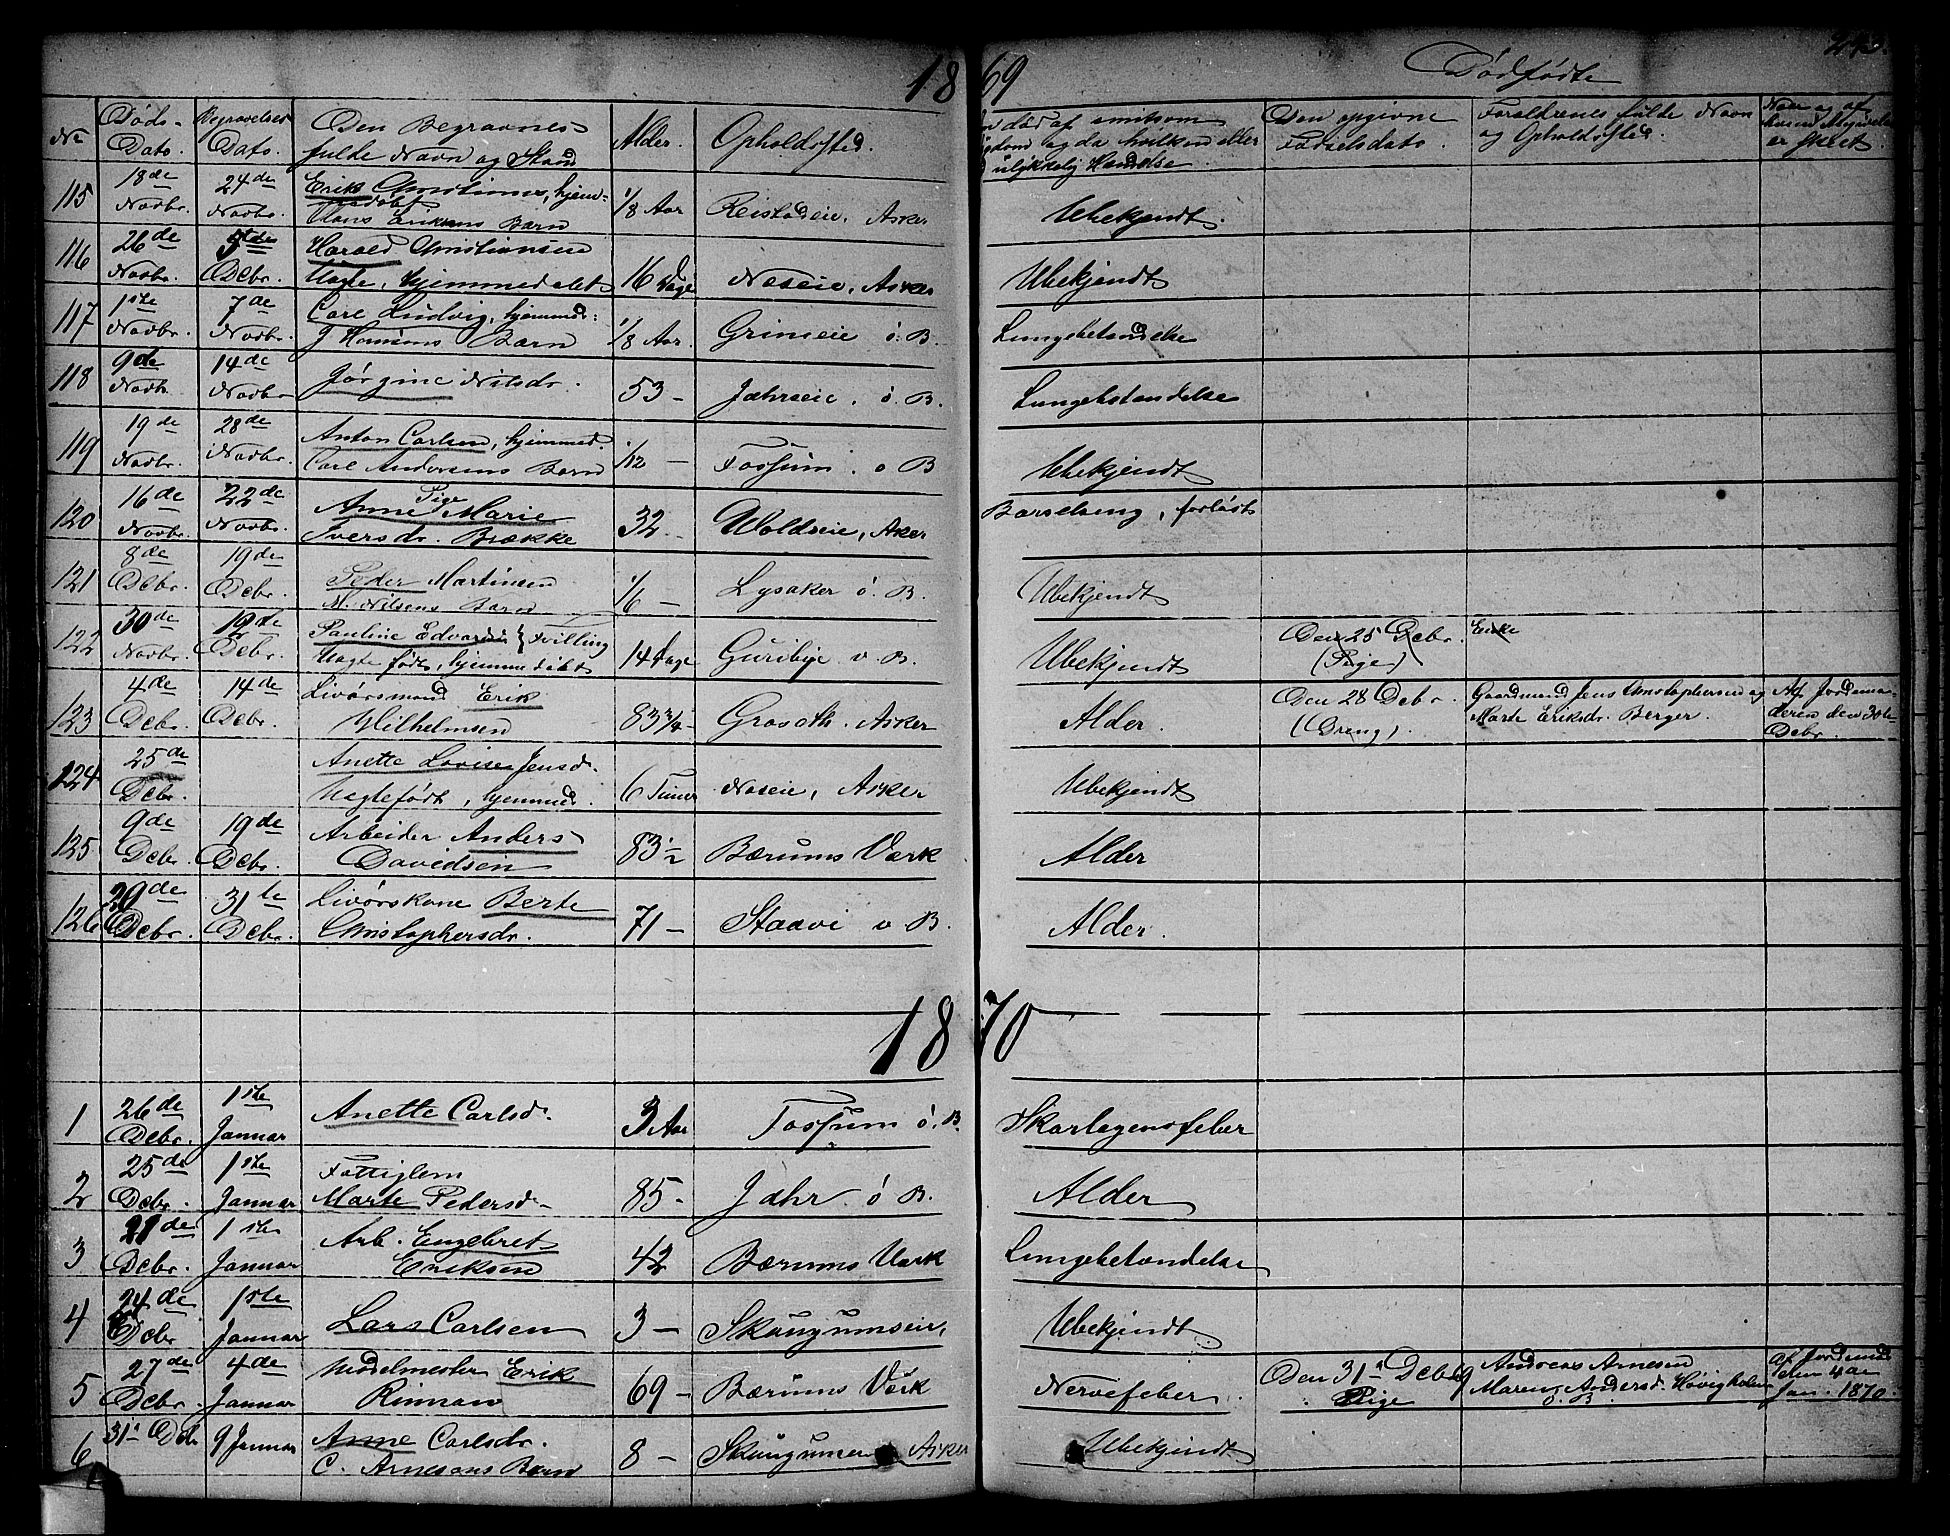 18 69
Dødfødte
No
Døds-
Dato.
Begravelses
Dato.
Den Begravnes
fulde Navn og Stand
Alder.
Opholdssted.
død af smitsom
og da hvilken eller
ulykkelig Hændelse
Den opgivne
Fødselsdato.
Forældrenes fulde Navn
og Opholdssted.
Naar og af
er skeet.
115 18de Novbr. 24de Novbr. Erik Christiansen, hjem-
døbt
Hans Eriksens Barn 1/8 Aar Reistadeie, Asker Ubekjendt.
116 26de Novbr. 5te Debr. Harald Christiansen
Uægte, hjemmedøbt 16 Dage Neseie, Asker Ubekjendt
117 1ste Novbr. 7de Novbr. Carl Ludvig, hjemmed:
J Hansens Barn 1/8 Aar. Grinieie ö. B. Lungebetændelse
118 9de Novbr 14de Novbr Jørgine Nilsdr. 53 - Jahrseie. ö. B. Lungebetændelse
119 19de Novbr. 28de Novbr. Anton Carlsen, hjemmed.
Carl Andersens Barn 1/12 - Fossum. ö B Ubekjendt
120 16de Novbr. 22de Novbr. Pige
Anne Marie
Iversdr. Brække 32 - Woldseie, Asker Barselseng, forløst
121 8de Debr. 19de Debr. Peder Martinsen
M. Nilsens Barn 1/6 - Lysaker ö. B. Ubekjendt
122 30de Novbr. 19de Debr. Pauline Edvardsd } Tvilling
Uægte født, hjemmedøbt 14 Dage Guribye v. B. Ubekjendt Den 25 Debr. Enke
(Pige)
123 4de Debr. 14de Debr. Livørsmand Erik
Wilhelmsen 83 3/4 - Grosøth. Asker Alder Den 28 Debr.
(Dreng). Gaardmand Jens Christophersen og
Marte Eriksdr. Berger. Af Jordemo-
deren den 30te
Debr.
124 25de Debr. Anette Lovise Jensd.
Uægtefødt, hjemmed. 6 Timer Neseie, Asker Ubekjendt
125 9de Debr. 19de Debr. Arbeider Anders
Davidsen 83 1/2 Bærums Værk Alder
126 29de Debr. 31te Debr. Livørskone Berte
Christophersdr. 71 - Staavi v B. Alder.
18 70
1 26de Debr. 1ste Januar Anette Carlsd. 3 Aar Fossum ö. B. Skarlagensfeber
2 25de Debr. 1ste Januar Fattiglem
Marte Pedersd. 85 - Jahr. ö B. Alder
3 21de Debr. 1ste Januar Arb. Engebret
Eriksen 42 Bærums Værk Lungebetændelse
4 24de Debr 1ste Januar Lars Carlsen 3 - Skaugumseie, Ubekjendt
5 27de Debr. 4de Januar Modelmester Erik
Rinman 69 - Bærums Værk Nervefeber. Den 31te Debr 69
Pige Andreas Arnesen
Maren Andersd. Høvigholm
v. B. af Jordemd
den 4de
Jan. 1870.
6 31te Debr 9 Januar Anne Carlsdr.
C. Arnesens Barn 8 - Skaugumseie Asker Ubekjendt